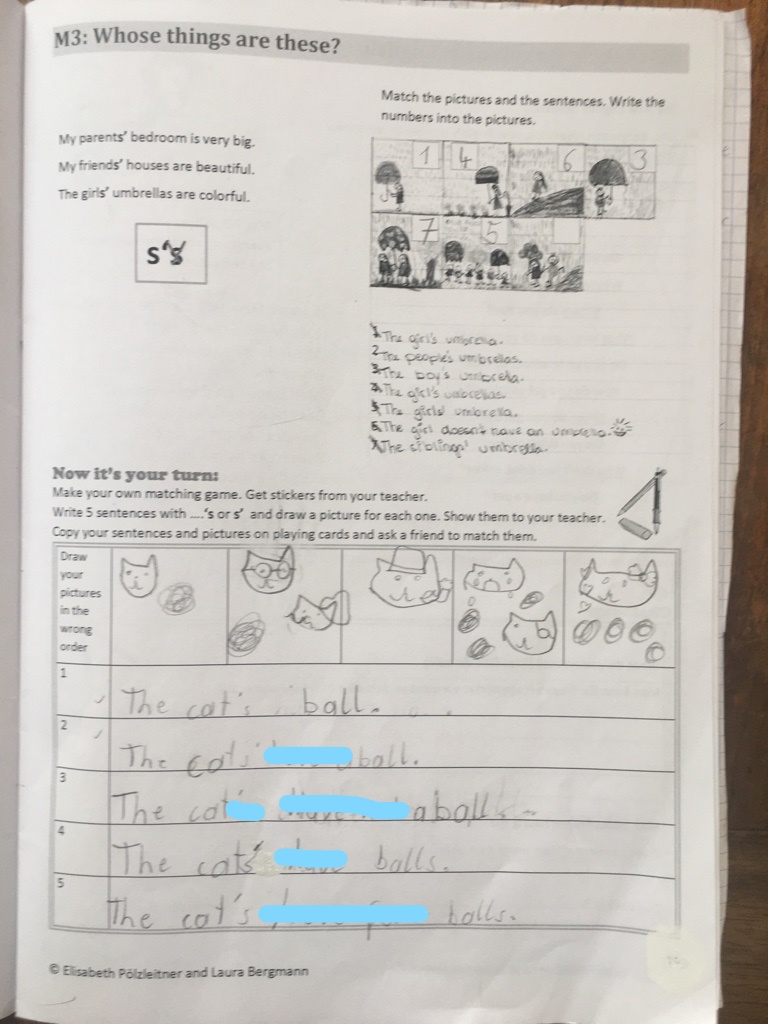 M3: Whose things are these?
Match the pictures and the sentences. Write the
numbers into the pictures.
My parents' bedroom is very big.
My friends' houses are beautiful.
The girls' umbrellas are colorful.
s's
1 4 6 3
7 5
1 The girl's umbrella.
2 The people's umbrellas.
3 The boy's umbrella.
4 The girl's umbrellas.
5 The girls' umbrella.
6 The girl doesn't have an umbrella.
7 The siblings' umbrella.
Now it's your turn:
Make your own matching game. Get stickers from your teacher.
Write 5 sentences with ....'s or s' and draw a picture for each one. Show them to your teacher.
Copy your sentences and pictures on playing cards and ask a friend to match them.
Draw
your
pictures
in the
wrong
order
1 The cat's ball.
2 The cats' ball.
3 The cat a ball
4 The cats' balls.
5 The cat's balls.
© Elisabeth Pölzleitner and Laura Bergmann